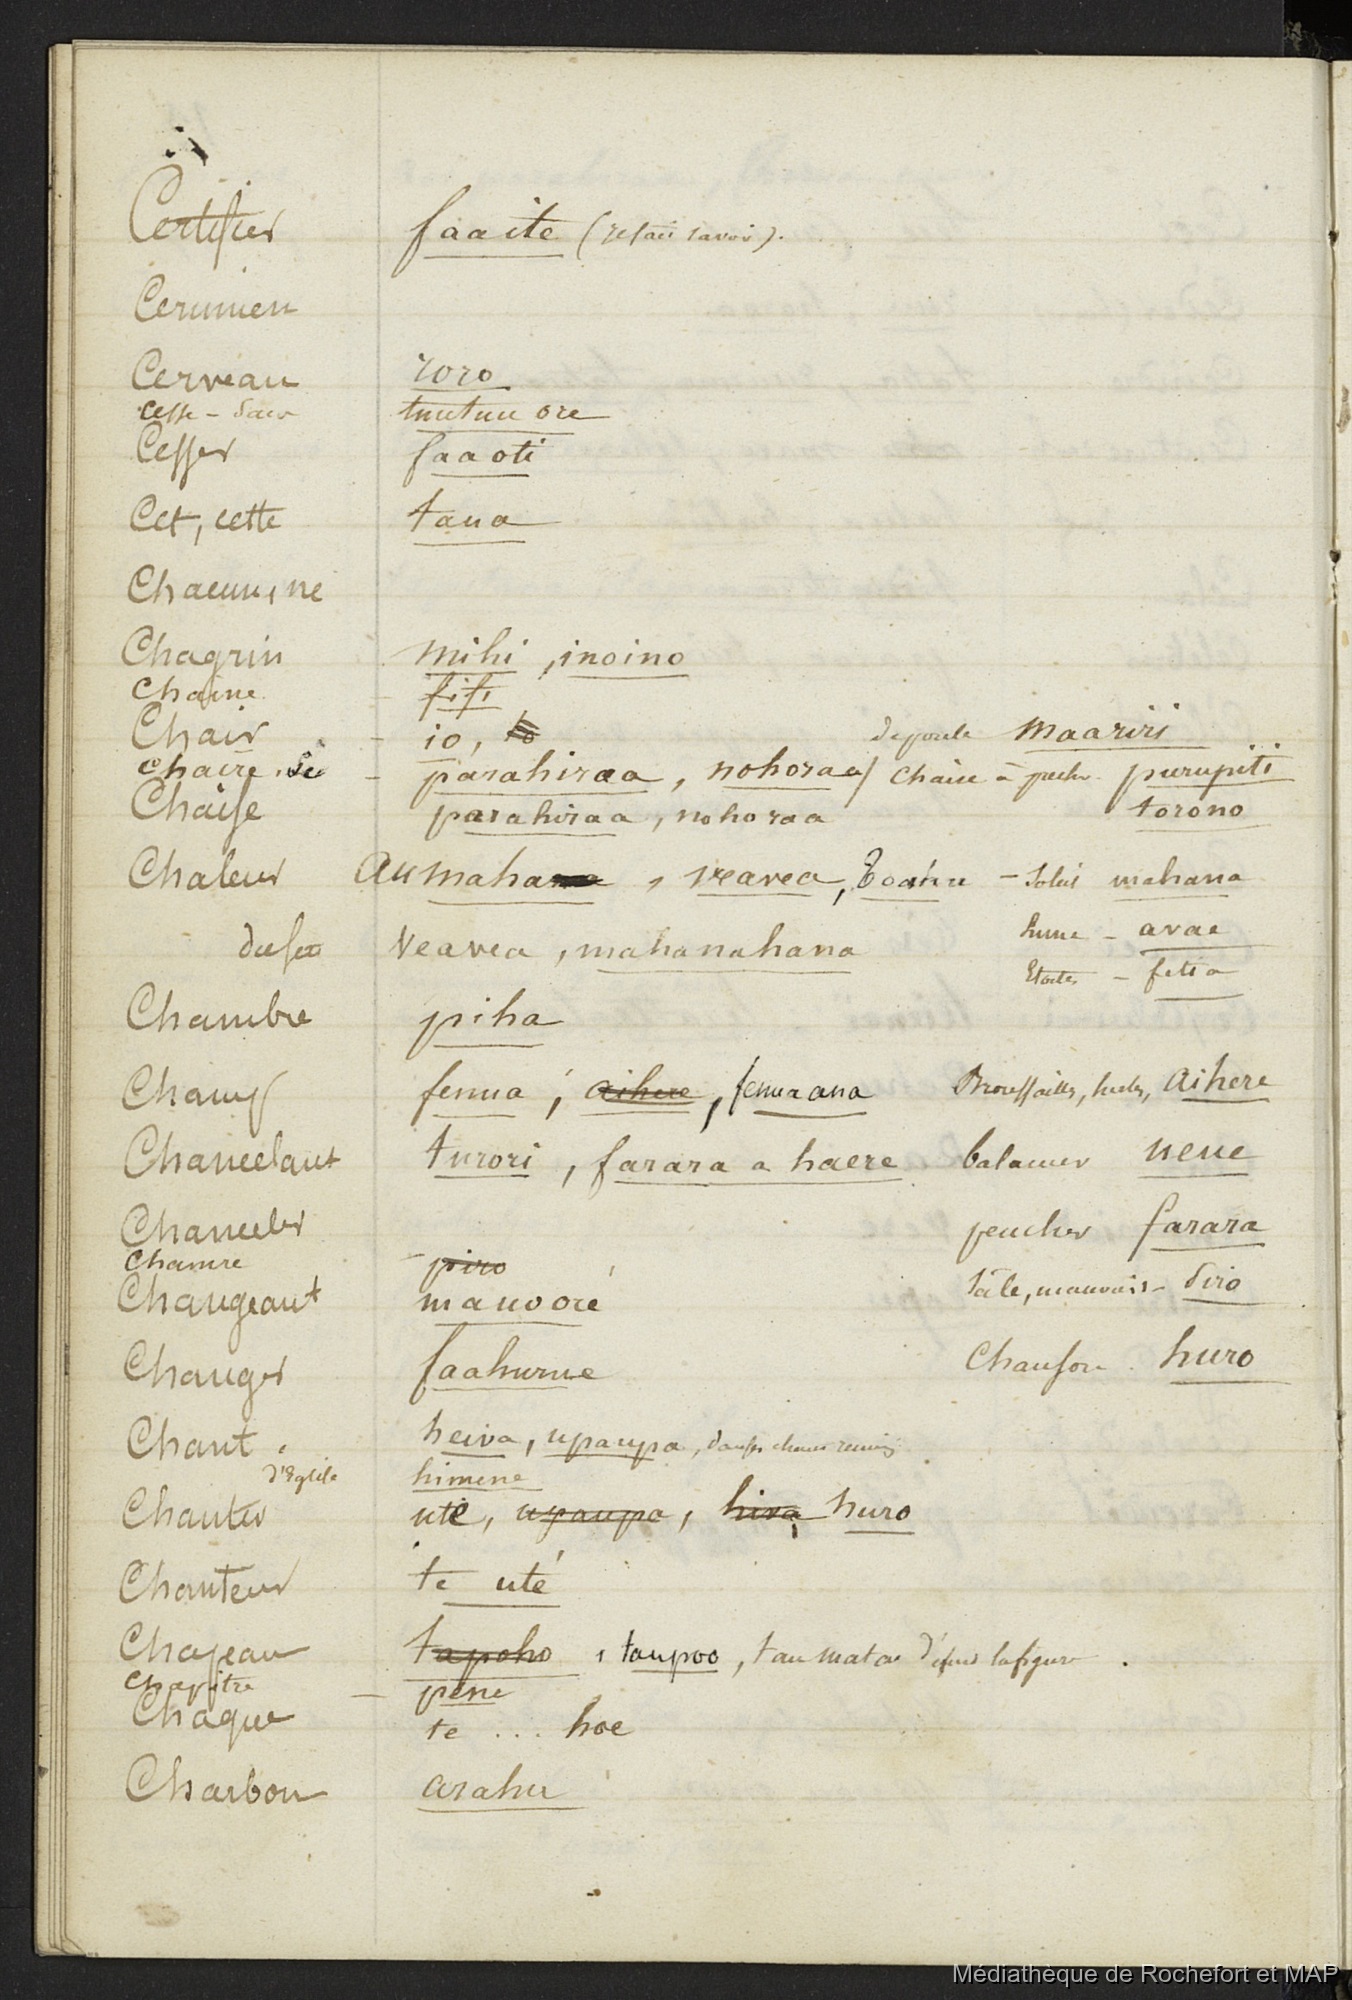 Certifier faaite (refaire savoir).
Cerumen
Cerveau roro
Cesse - sans tuutuu ore
Cesser faaoti
Cet, cette taua
Chacun, ne
Chagrin mihi, inoino
Chaine - fifi
Chair - io, to de poule maariri
Chaire, de - parahiraa, nohoraa / Chaire à precher purupiti
Chaise parahiraa, nohoraa torono
Chaleur Aumahana, veavea, Eoahu - Soleil mahana
Lune - avae
du feu Veavea, mahanahana
Etoiles - fetia
Chambre piha
Champ fenua, aihere, fenua ana Broussailles, herbes, Aihere
Chancelant turori, farara a haere balancer ueue
Chanceler pencher farara
Chancre - piro
Changeant mauoore Sale, mauvais - Piro
Changer faahurue Chanson huro
Chant. heiva, upaupa, danses chants reunis
d'Eglise himene
Chanter ute, upaupa, hiva huro
Chanteur te uté
Chapeau tapoho, taupoo, taumata
Chapitre - pene
Chaque te ... hoe
Charbon arahu
Médiathèque de Rochefort et MAP